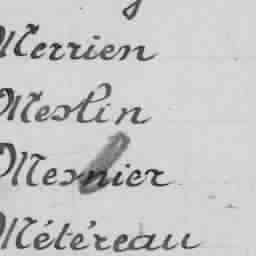 Merrien
Meslin
Mesnier
Météreau